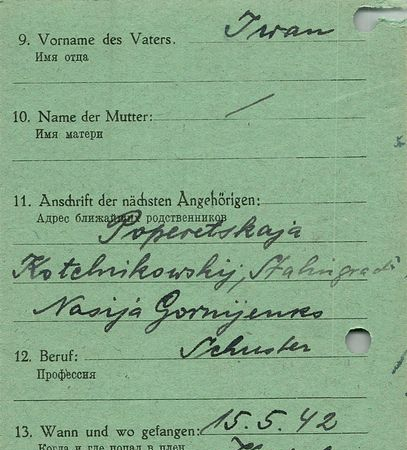 9. Vorname des Vaters. Iwan
Имя отца
10. Name der Mutter: —
Имя матери
11. Anschrift der nächsten Angehörigen:
Адрес ближайших родственников
Poperetskaja
Kotelnikowskij, Stalingrad
Nasija Gornijenko
12. Beruf: Schuster
Профессия
13. Wann und wo gefangen: 15.5.42
Когда и где попал в плен